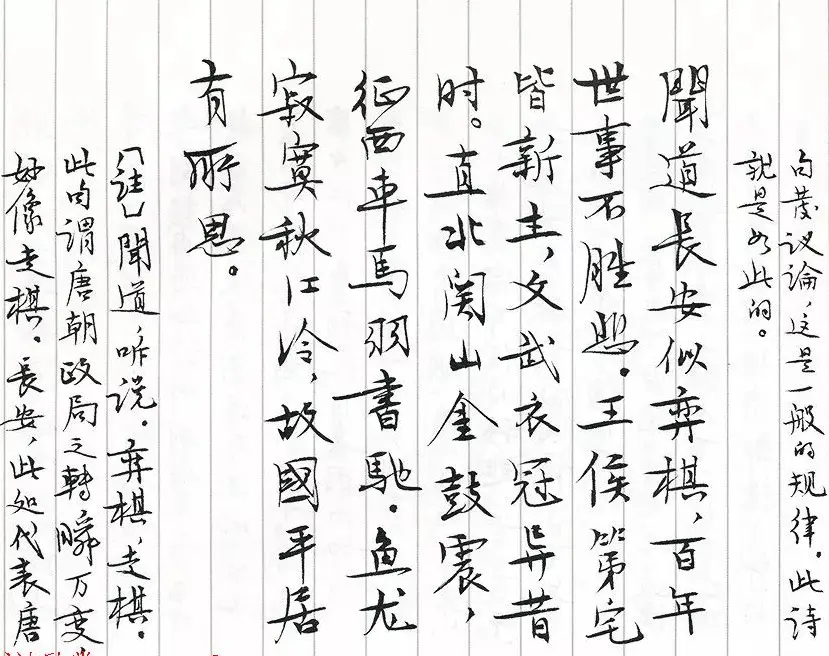 句發议论，这是一般的规律。此诗
就是如此的。
聞道長安似弈棋，百年
世事不胜悲。王侯第宅
皆新主，文武衣冠异昔
时。直北関山金鼓震，
征西車馬羽書馳。鱼龙
寂寞秋江冷，故國平居
有所思。
〔註〕聞道，听说。弈棋，走棋。
此句谓唐朝政局之轉瞬万变，
好像走棋。長安，此处代表唐